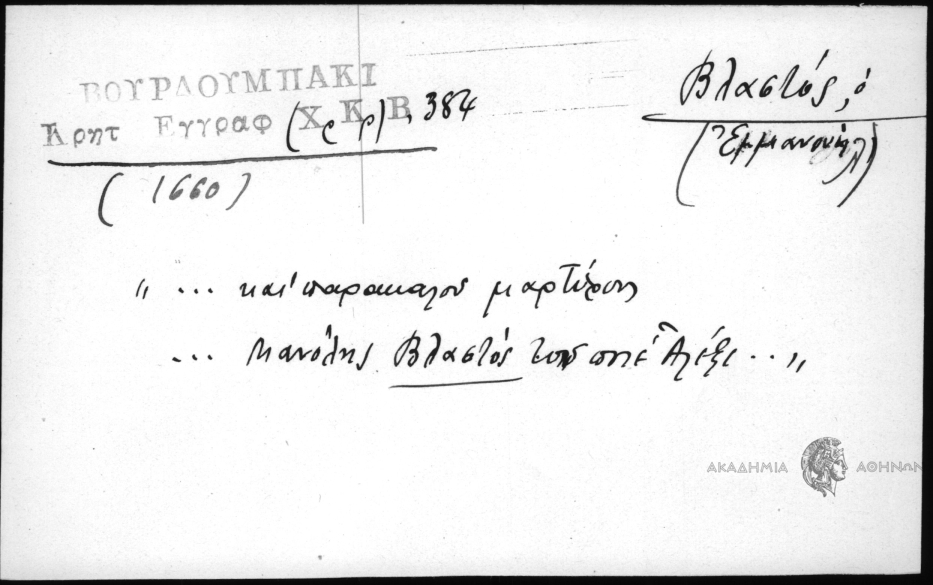 ΒΟΥΡΔΟΥΜΠΑΚΙ
Κρητ Εγγραφ (ρρ) Χ Κ Β, 384
(1660)
Βλαστός, ὁ
(Ἐμμανουήλ)
" ... καί παρακαλοῦ μαρτύρους
... Μανόλης Βλαστός τοῦ ποτέ Ἀλέξι ... "
ΑΚΑΔΗΜΙΑ ΑΘΗΝΩΝ